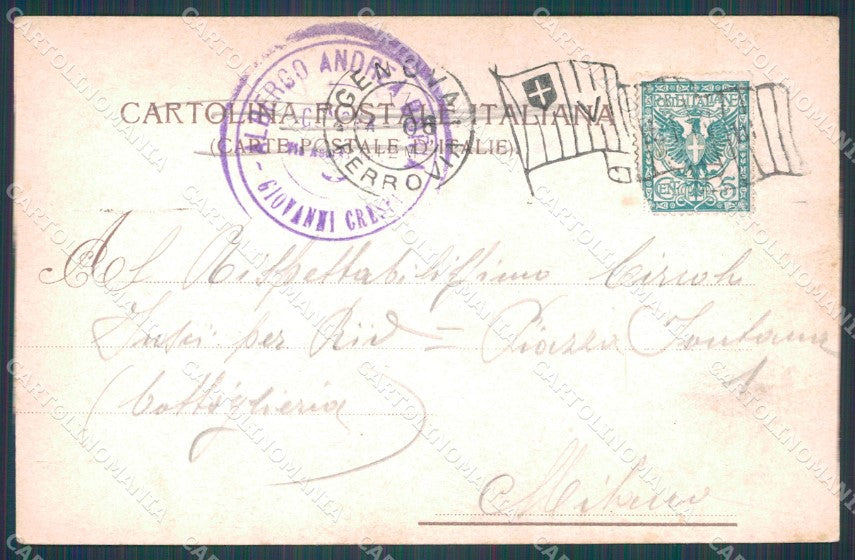 CARTOLINA POSTALE ITALIANA
(CARTE POSTALE D'ITALIE)
ALBERGO ANDREA
GIOVANNI CRESPI
GENOVA
FERROVIA
POSTE ITALIANE
CENT. 5
Al Rispettabilissimo Circolo
per Rid = Piazza Fontana
1
(Bottiglieria)
Milano
CARTOLINOMANIA